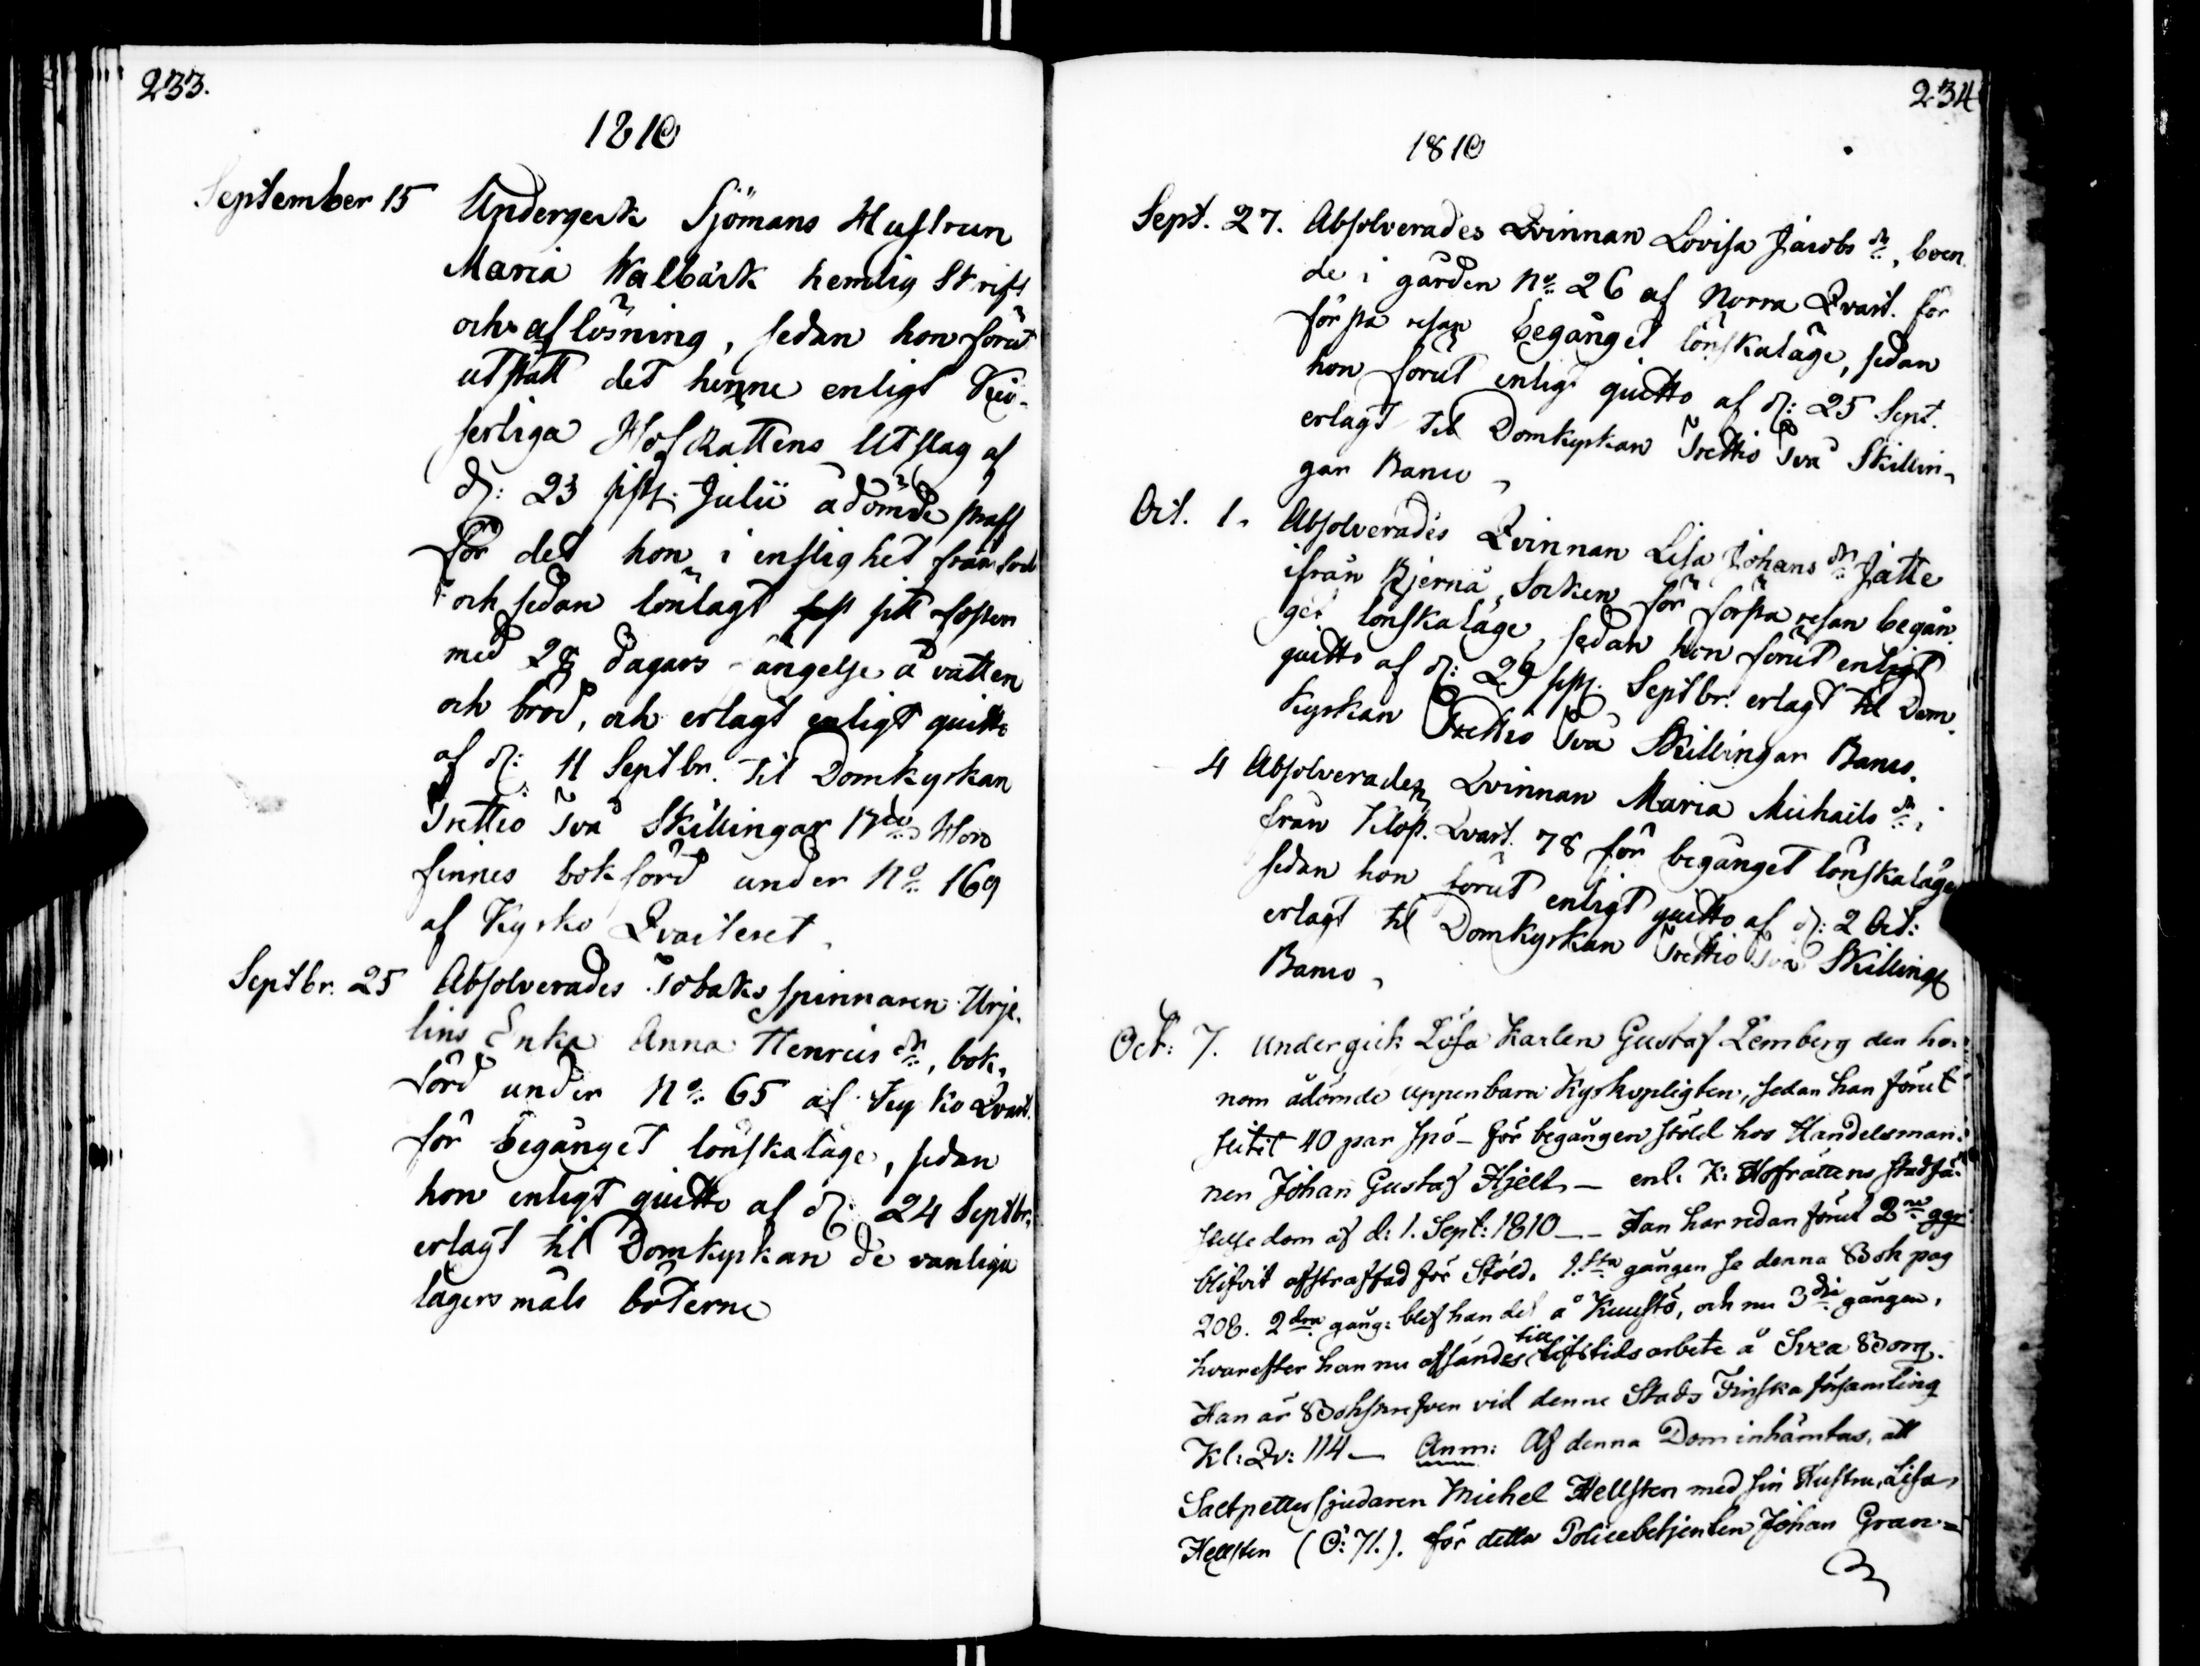 233.
1810
September 15 Undergeck Sjömans Hustrun
Maria Walbäck hemlig Skrift
och aflösning, sedan hon förut
utstått det henne enligt Kei-
serliga HofRättens Utslag af
d: 23 sistl. Julii ådömde straff
för det hon i enslighet framfödt
och sedan lönlagt sitt foster
med 28 dagars fängelse å vatten
och bröd, och erlagt enligt quitto
af d: 11 Septbr. til Domkyrkan
Trettio Två Skillingar Bco. Hon
finnes bokförd under No. 169
af Kyrko Qvarteret.
Septbr. 25 Absolverades Tobaks spinnaren Urje-
lins Enka Anna Henricsdr., bok-
förd under No. 65 af Kyrko Qvart.
för begånget lönskaläge, sedan
hon enligt quitto af d: 24 Septbr.
erlagt til Domkyrkan de vanliga
lägersmåls böterne
234
1810
Sept. 27. Absolverades Qvinnan Lovisa Jacobsdr., boen-
de i gården No. 26 af Norra Qvart. för
första resan begånget lönskaläge, sedan
hon förut enligt quitto af d: 25 Sept.
erlagt til Domkyrkan Trettio Två Skillin-
gar Banco.
Oct. 1. Absolverades Qvinnan Lisa Johansdr. Jätte
ifrån Bjernå Socken för första resan begån-
get lönskaläge, sedan hon förut enligt
quitto af d: 29 sistl. Septbr. erlagt til Dom-
kyrkan Trettio Två Skillingar Banco.
4 Absolverades Qvinnan Maria Michelsdr. i
från Klost. Qvart. 78 för begånget lönskaläge
sedan hon förut enligt quitto af d: 2 Oct:
erlagt til Domkyrkan Trettio Två Skillingar
Banco.
Oct: 7. undergick Lösa Karlen Gustaf Lemberg den ho-
nom ådömde uppenbara Kyrkopligten, sedan han förut
slitit 40 par spö - för begången stöld hos Handelsman-
nen Johan Gustaf Hjelt, - enl. K: Hofrättens stadfä-
stelse dom af d: 1. Sept: 1810 - Han har redan förut 2ne ggr
blifvit afstraffad för Stöld. 1.sta gången se denna Bok pag
208. 2dra gång: blef han det å Kuustö, och nu 3die gången,
hvarefter han nu afsändes till lifstids arbete å Svea Borg.
Han är Bokskrefven vid denne Stads Finska församling
Kl: Qv: 114 - Anm: Af denna Dom inhämtas, att
Saltpetter sjudaren Michel Hellsten med sin Hustru, Lisa
Hellsten (O: 71.). för detta Policebetjenten Johan Gran=